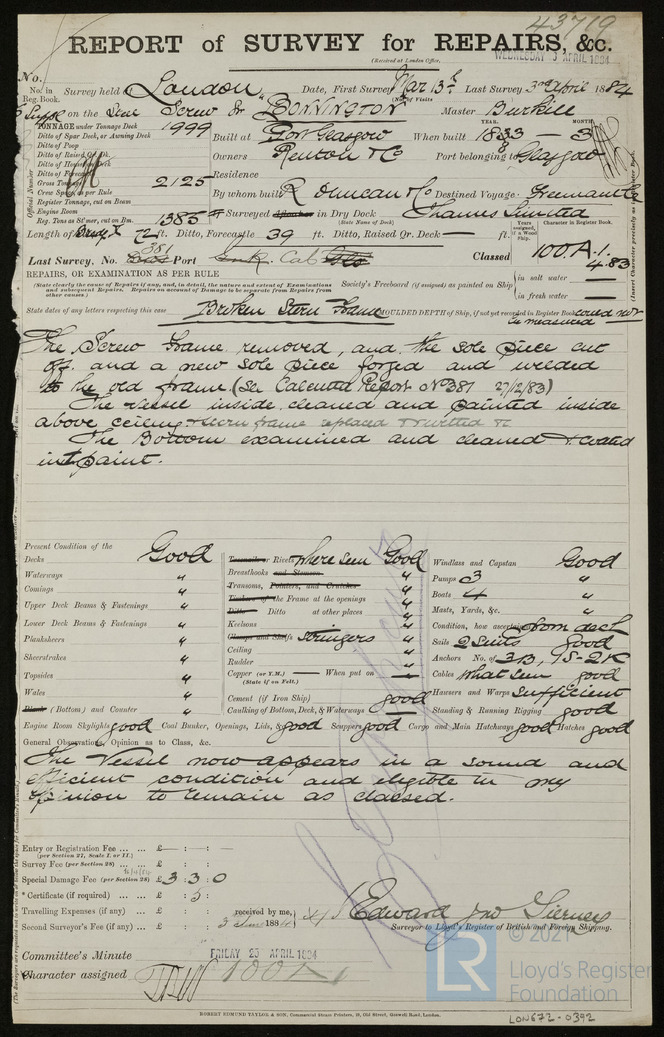 43719
REPORT of SURVEY for REPAIRS, &c.
(Received at London Office,
WEDNESDAY 3 APRIL 1884
No.
No. in Reg. Book. Survey held at London Date, First Survey Mar 13th Last Survey 3rd April 1884
(No. of Visits
on the Screw Sr "BONNINGTON" Master Burkill
TONNAGE under Tonnage Deck 1999
Ditto of Spar Deck, or Awning Deck
Ditto of Poop
Ditto of Raised Qr. Dk.
Ditto of House on Deck
Ditto of Forecastle
Gross Tonnage 2125
Crew Space as per Rule
Register Tonnage, cut on Beam
Engine Room
Reg. Tons as St'mer, cut on Bm. 1385
Built at Port Glasgow When built YEAR. 1883 MONTH 3
Owners Renton & Co Port belonging to Glasgow
Residence
By whom built R Duncan & Co Destined Voyage
Surveyed Afloat or in Dry Dock Thames
(State Name of Dock)
Length of 72 ft. Ditto, Forecastle 39 ft. Ditto, Raised Qr. Deck — ft.
Last Survey, No. 381 Port Cal
Classed 100 A.1. 4.83
Years assigned, if a Wood Ship.
Character in Register Book.
(Insert Character precisely as
REPAIRS, OR EXAMINATION AS PER RULE
(State clearly the cause of Repairs if any, and, in detail, the nature and extent of Examinations and subsequent Repairs. Repairs on account of Damage to be separate from Repairs from other causes.)
Society's Freeboard (if assigned) as painted on Ship
in salt water —
in fresh water —
State dates of any letters respecting this case
Broken Stern Frame MOULDED DEPTH of Ship, (if not yet recorded in Register Book) could not be measured
The Screw Frame removed, and the sole piece cut
off. and a new sole piece forged and welded
to the old frame (See Calcutta Report No 381 27/12/83)
The Vessel inside cleaned and painted inside
above ceiling stern frame replaced & rivetted &c
The Bottom examined and cleaned & coated
in paint.
Present Condition of the
Decks Good
Waterways "
Comings "
Upper Deck Beams & Fastenings "
Lower Deck Beams & Fastenings "
Planksheers "
Sheerstrakes "
Topsides "
Wales "
Blank (Bottom) and Counter "
Treenails or Rivets where seen Good
Breasthooks and Stemson "
Transoms, Pointers, and Crutches "
Timbers of the Frame at the openings "
Ditto Ditto at other places "
Keelsons "
Clamps and Shelfs stringers "
Ceiling "
Rudder "
Copper (or Y.M.) — When put on —
(State if on Felt.)
Cement (if Iron Ship) good
Caulking of Bottom, Deck, & Waterways —
Windlass and Capstan Good
Pumps 3 "
Boats 4 "
Masts, Yards, &c. "
Condition, how ascertained from deck
Sails 2 Suits good
Anchors No. of 3B, 1S - 2K
Cables what seen good
Hawsers and Warps sufficient
Standing & Running Rigging good
Engine Room Skylights good Coal Bunker, Openings, Lids, &c. good Scuppers good Cargo and Main Hatchways good Hatches good
General Observations, Opinion as to Class, &c.
The Vessel now appears in a sound and
efficient condition and eligible in my
opinion to remain as classed.
Entry or Registration Fee ... £ — : — : —
(per Section 27, Scale I. or II.)
Survey Fee (per Section 28) ... £
16/4/84
Special Damage Fee (per Section 28) £ 3 : 3 : 0
* Certificate (if required) ... £ : 5 :
Travelling Expenses (if any) ... £ : :
Second Surveyor's Fee (if any) ... £ : :
received by me,
1884
Edward Jno Tierney
Surveyor to Lloyd's Register of British and Foreign Shipping.
Committee's Minute FRIDAY 25 APRIL 1884
Character assigned 100A1
ROBERT EDMUND TAYLOR & SON, Commercial Steam Printers, 19, Old Street, Goswell Road, London.
LR
© 2021
Lloyd's Register
Foundation
LON672-0392